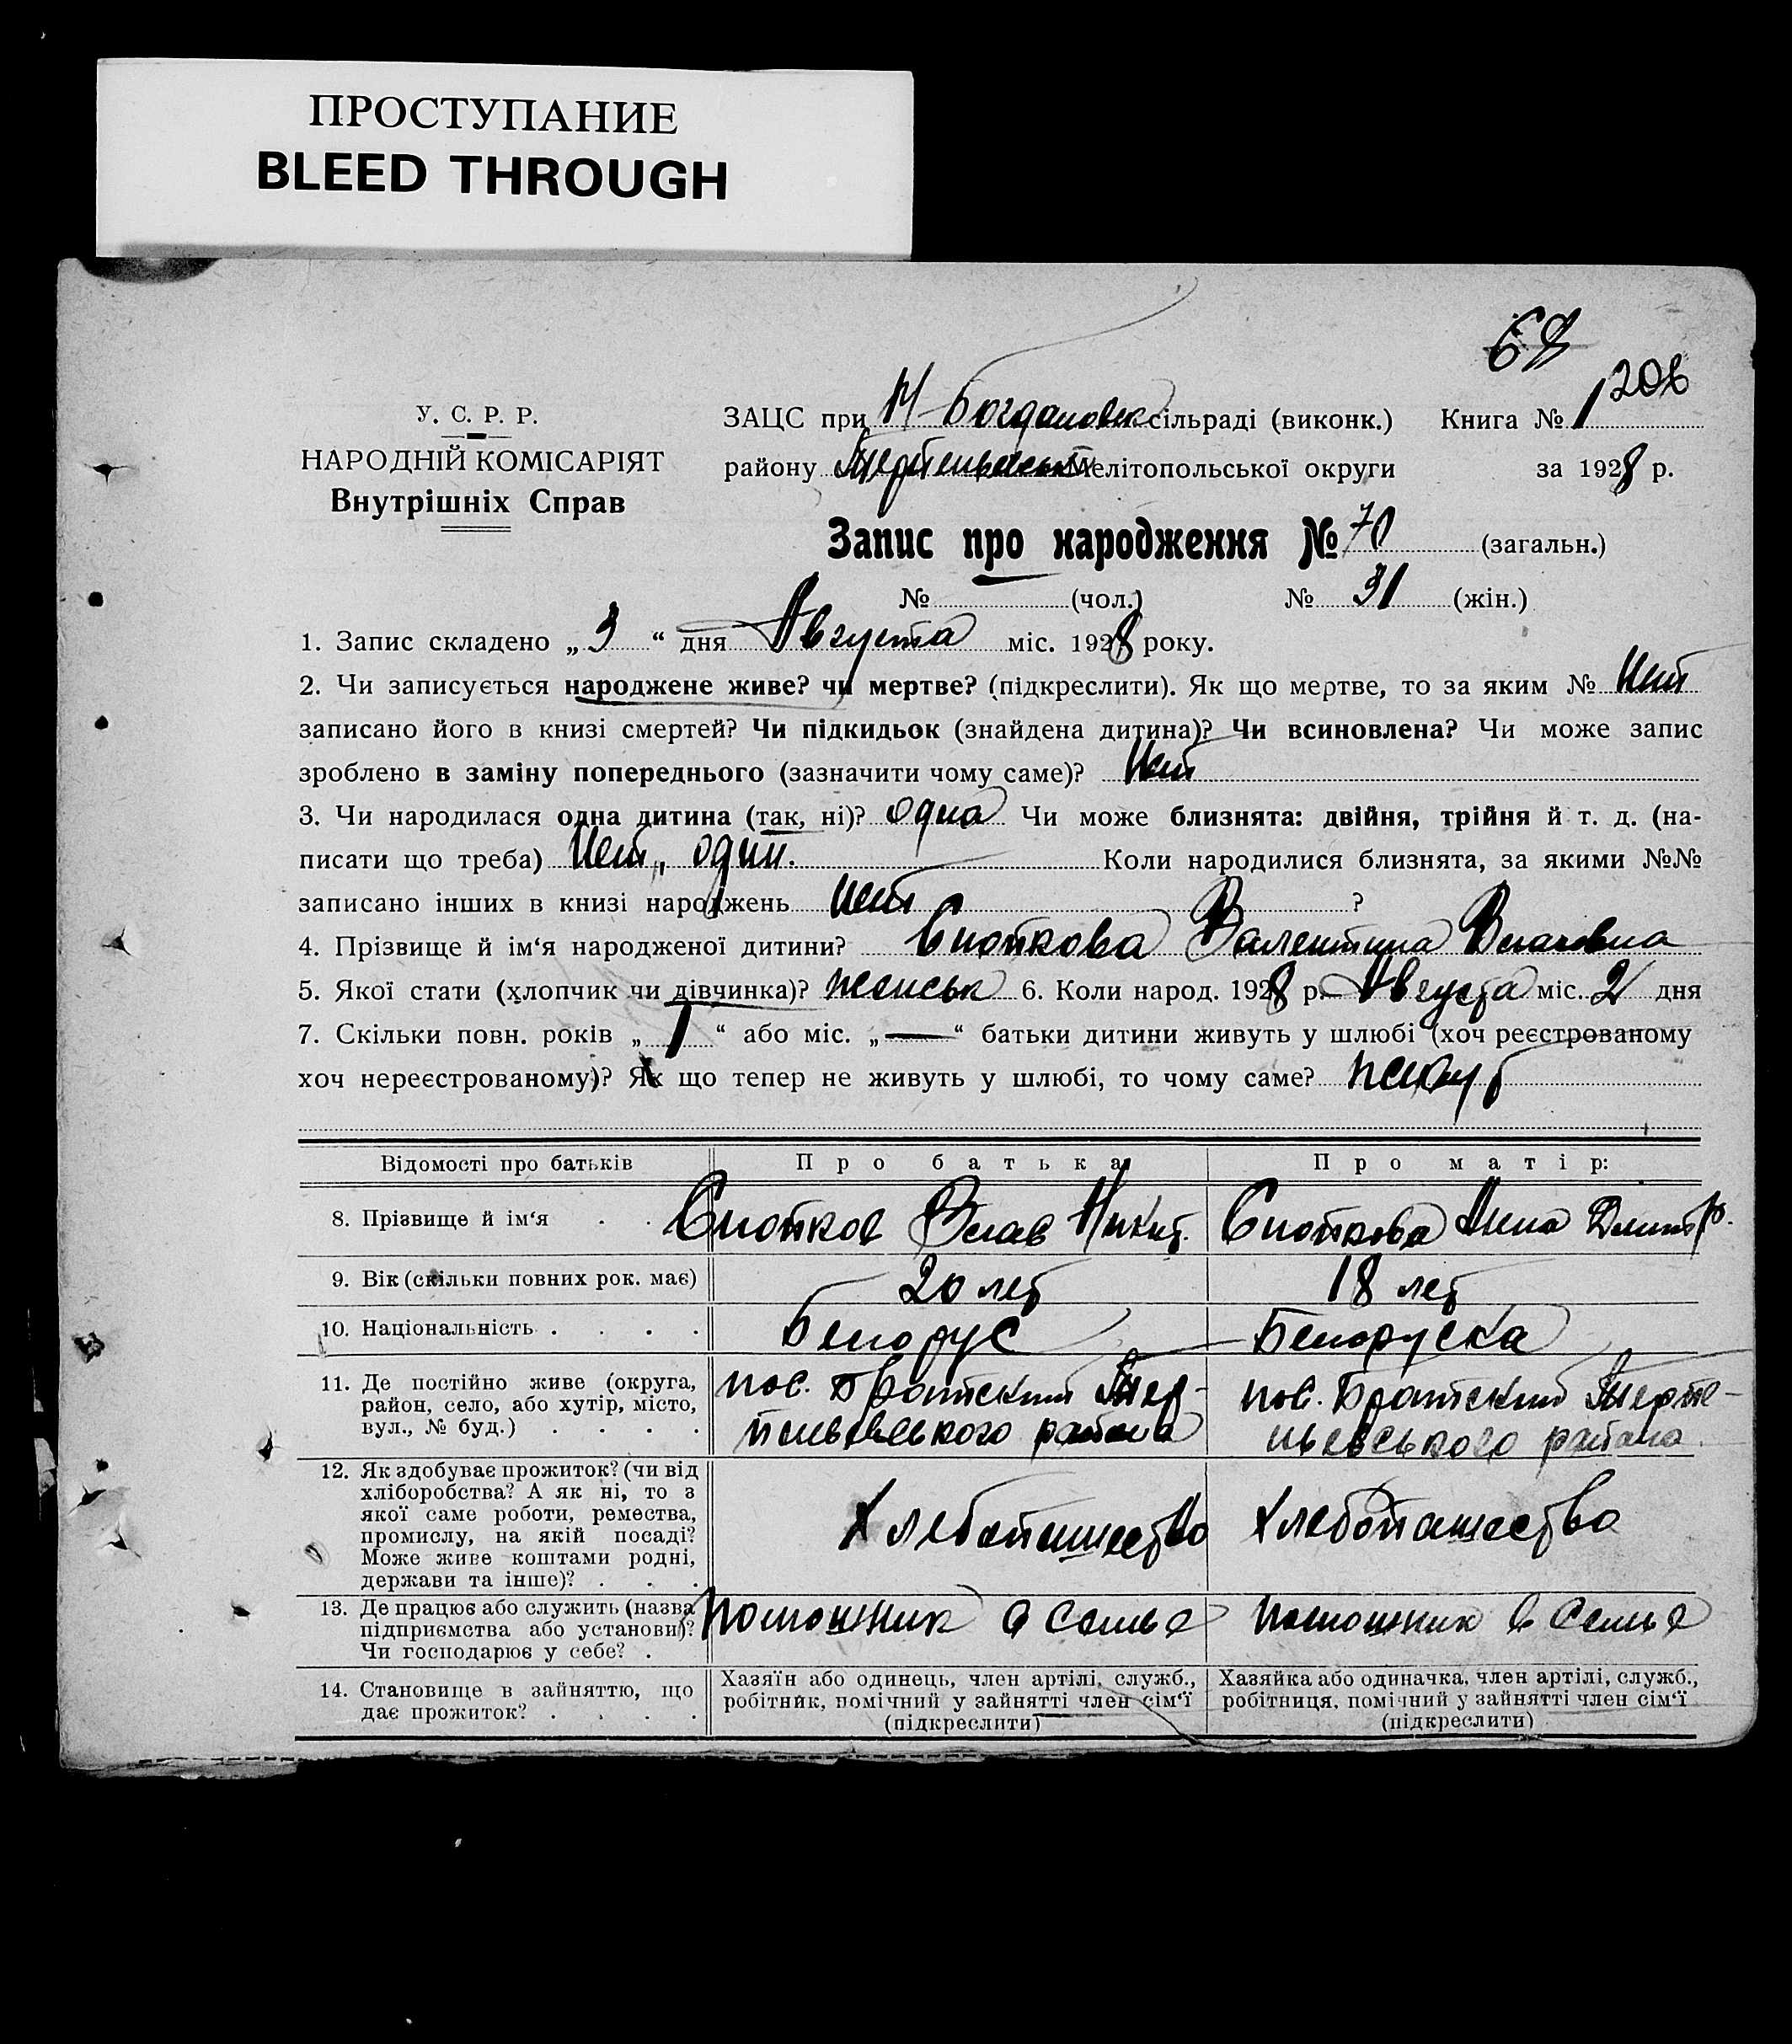 ПРОСТУПАНИЕ
BLEED THROUGH
206
У. С. Р. Р.
НАРОДНІЙ КОМІСАРІЯТ
Внутрішніх Справ
ЗАЦС при М Богдановск сільраді (виконк.) Книга № 1
району Мелітопольської округи за 1928 р.
Запис про народження № 70 (загальн.)
№ (чол.) № 31 (жін.)
1. Запис складено „ 3 “ дня Августа міс. 1928 року.
2. Чи записується народжене живе? чи мертве? (підкреслити). Як що мертве, то за яким № Нет
записано його в книзі смертей? Чи підкидьок (знайдена дитина)? Чи всиновлена? Чи може запис
зроблено в заміну попереднього (зазначити чому саме)? Нет
3. Чи народилася одна дитина (так, ні)? одна Чи може близнята: двійня, трійня й т. д. (на-
писати що треба) Нет, один. Коли народилися близнята, за якими №№
записано інших в книзі народжень нет ?
4. Прізвище й ім‘я народженої дитини? Валентина
5. Якої стати (хлопчик чи дівчинка)? женськ 6. Коли народ. 1928 р. Августа міс. 2 дня
7. Скільки повн. років „ 1 “ або міс. „ — “ батьки дитини живуть у шлюбі (хоч реєстрованому
хоч нереєстрованому)? Як що тепер не живуть у шлюбі, то чому саме? живут
Відомості про батьків Про батька Про матір:
8. Прізвище й ім‘я . . Никит. Анна Дмитр.
9. Вік (скільки повних рок. має) 20 лет 18 лет
10. Національність . . . . Белорус Белоруска
11. Де постійно живе (округа, пос. Братский Тер- пос. Братский Терпе-
район, село, або хутір, місто, пеньевського района ньевського района
вул., № буд.) . . . .
12. Як здобуває прожиток? (чи від
хліборобства? А як ні, то з
якої саме роботи, ремества, Хлебопашество Хлебопашество
промислу, на якій посаді?
Може живе коштами родні,
держави та інше)? . . .
13. Де працює або служить (назва Помошник в семье Помошник в семье
підприємства або установи)?
Чи господарює у себе? .
14. Становище в зайняттю, що Хазяїн або одинець, член артілі, служб., Хазяйка або одиначка, член артілі, служб.,
дає прожиток? . . . . робітник, помічний у зайнятті член сім‘ї робітниця, помічний у зайнятті член сім‘ї
(підкреслити) (підкреслити)